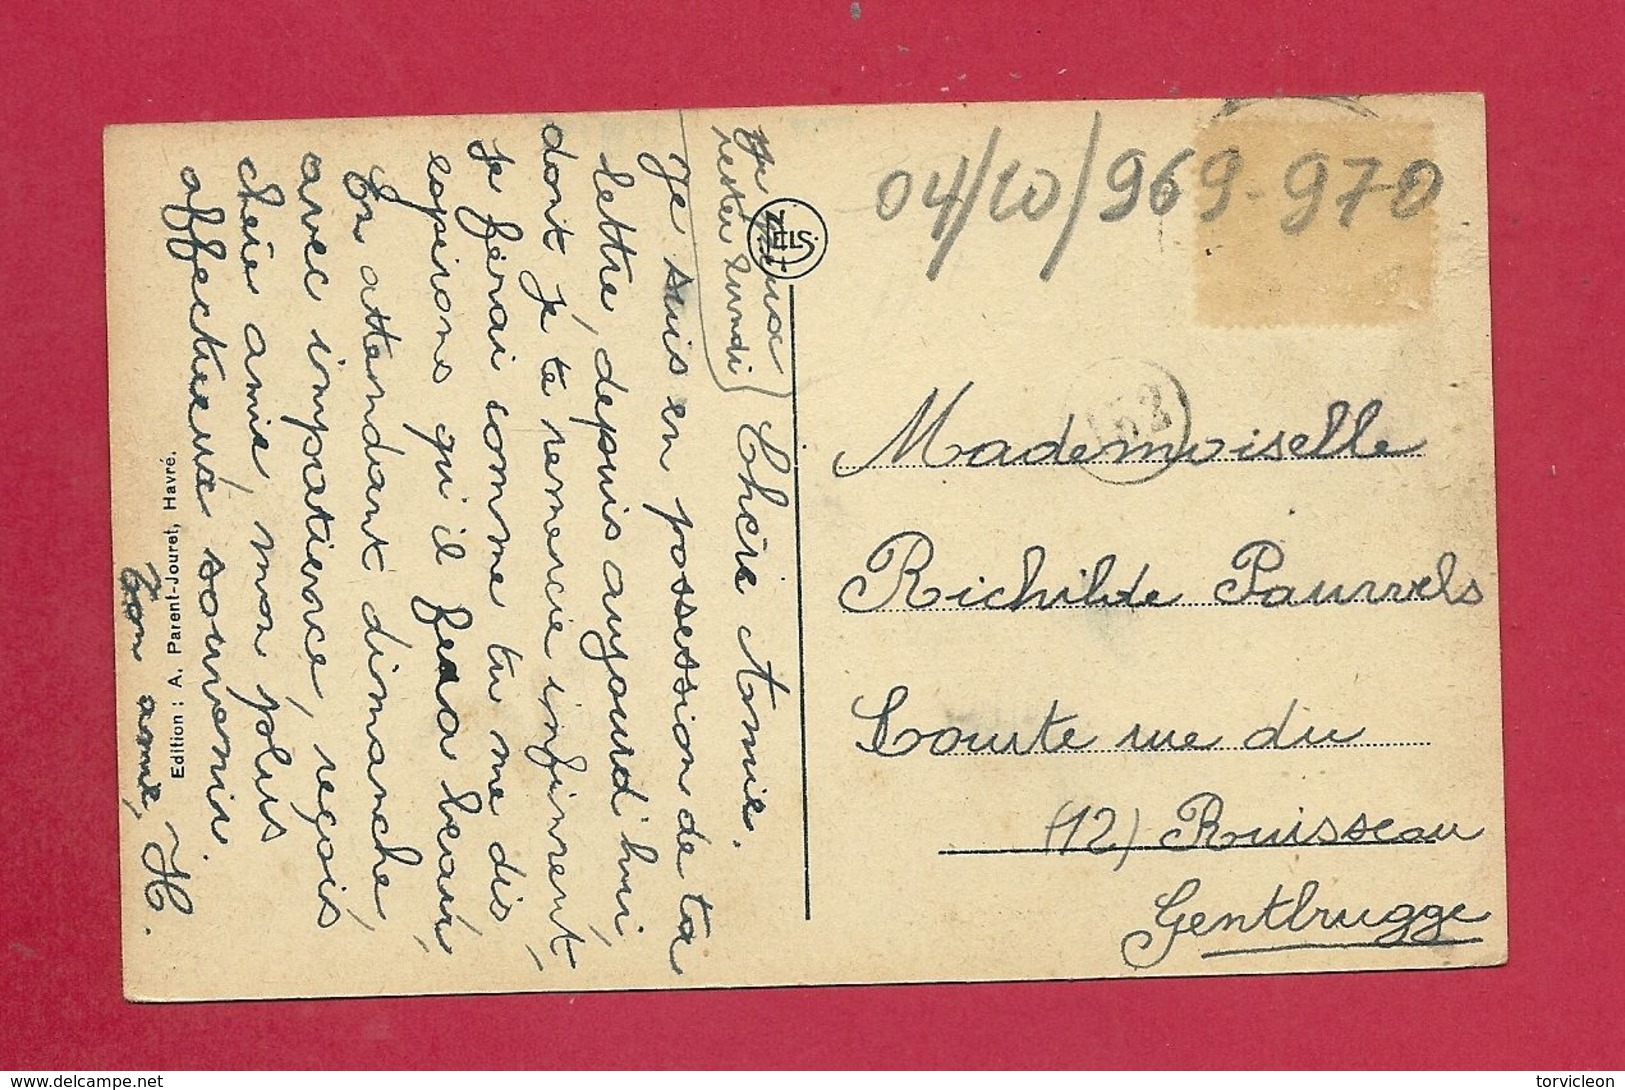 Je peux
rester lundi
Chère Amie.
Je suis en possession de ta
lettre, depuis aujourd'hui,
dont je te remercie infiniment,
je ferai comme tu me dis,
espérons qu'il fera beau,
En attendant dimanche,
avec impatience, reçois
chère amie, mon plus
affectueux souvenir.
Ton amie, H.
Edition : A. Parent-Jouret, Havré.
NELS
04/10/969-970
Mademoiselle
Richilde Pauwels
Courte rue du
(12) Ruisseau
Gentbrugge
delcampe.net
torvicleon